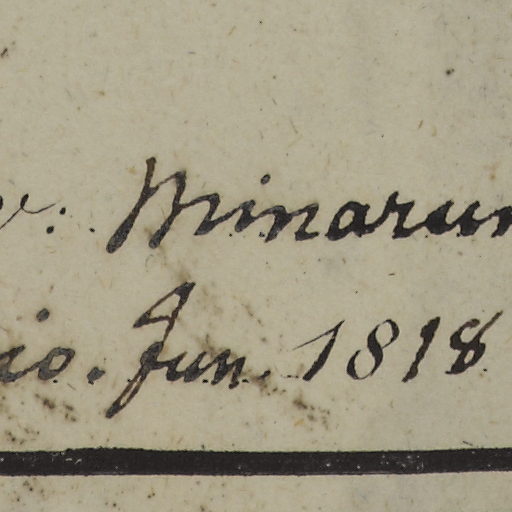 v. Minarum
io. Jun. 1818